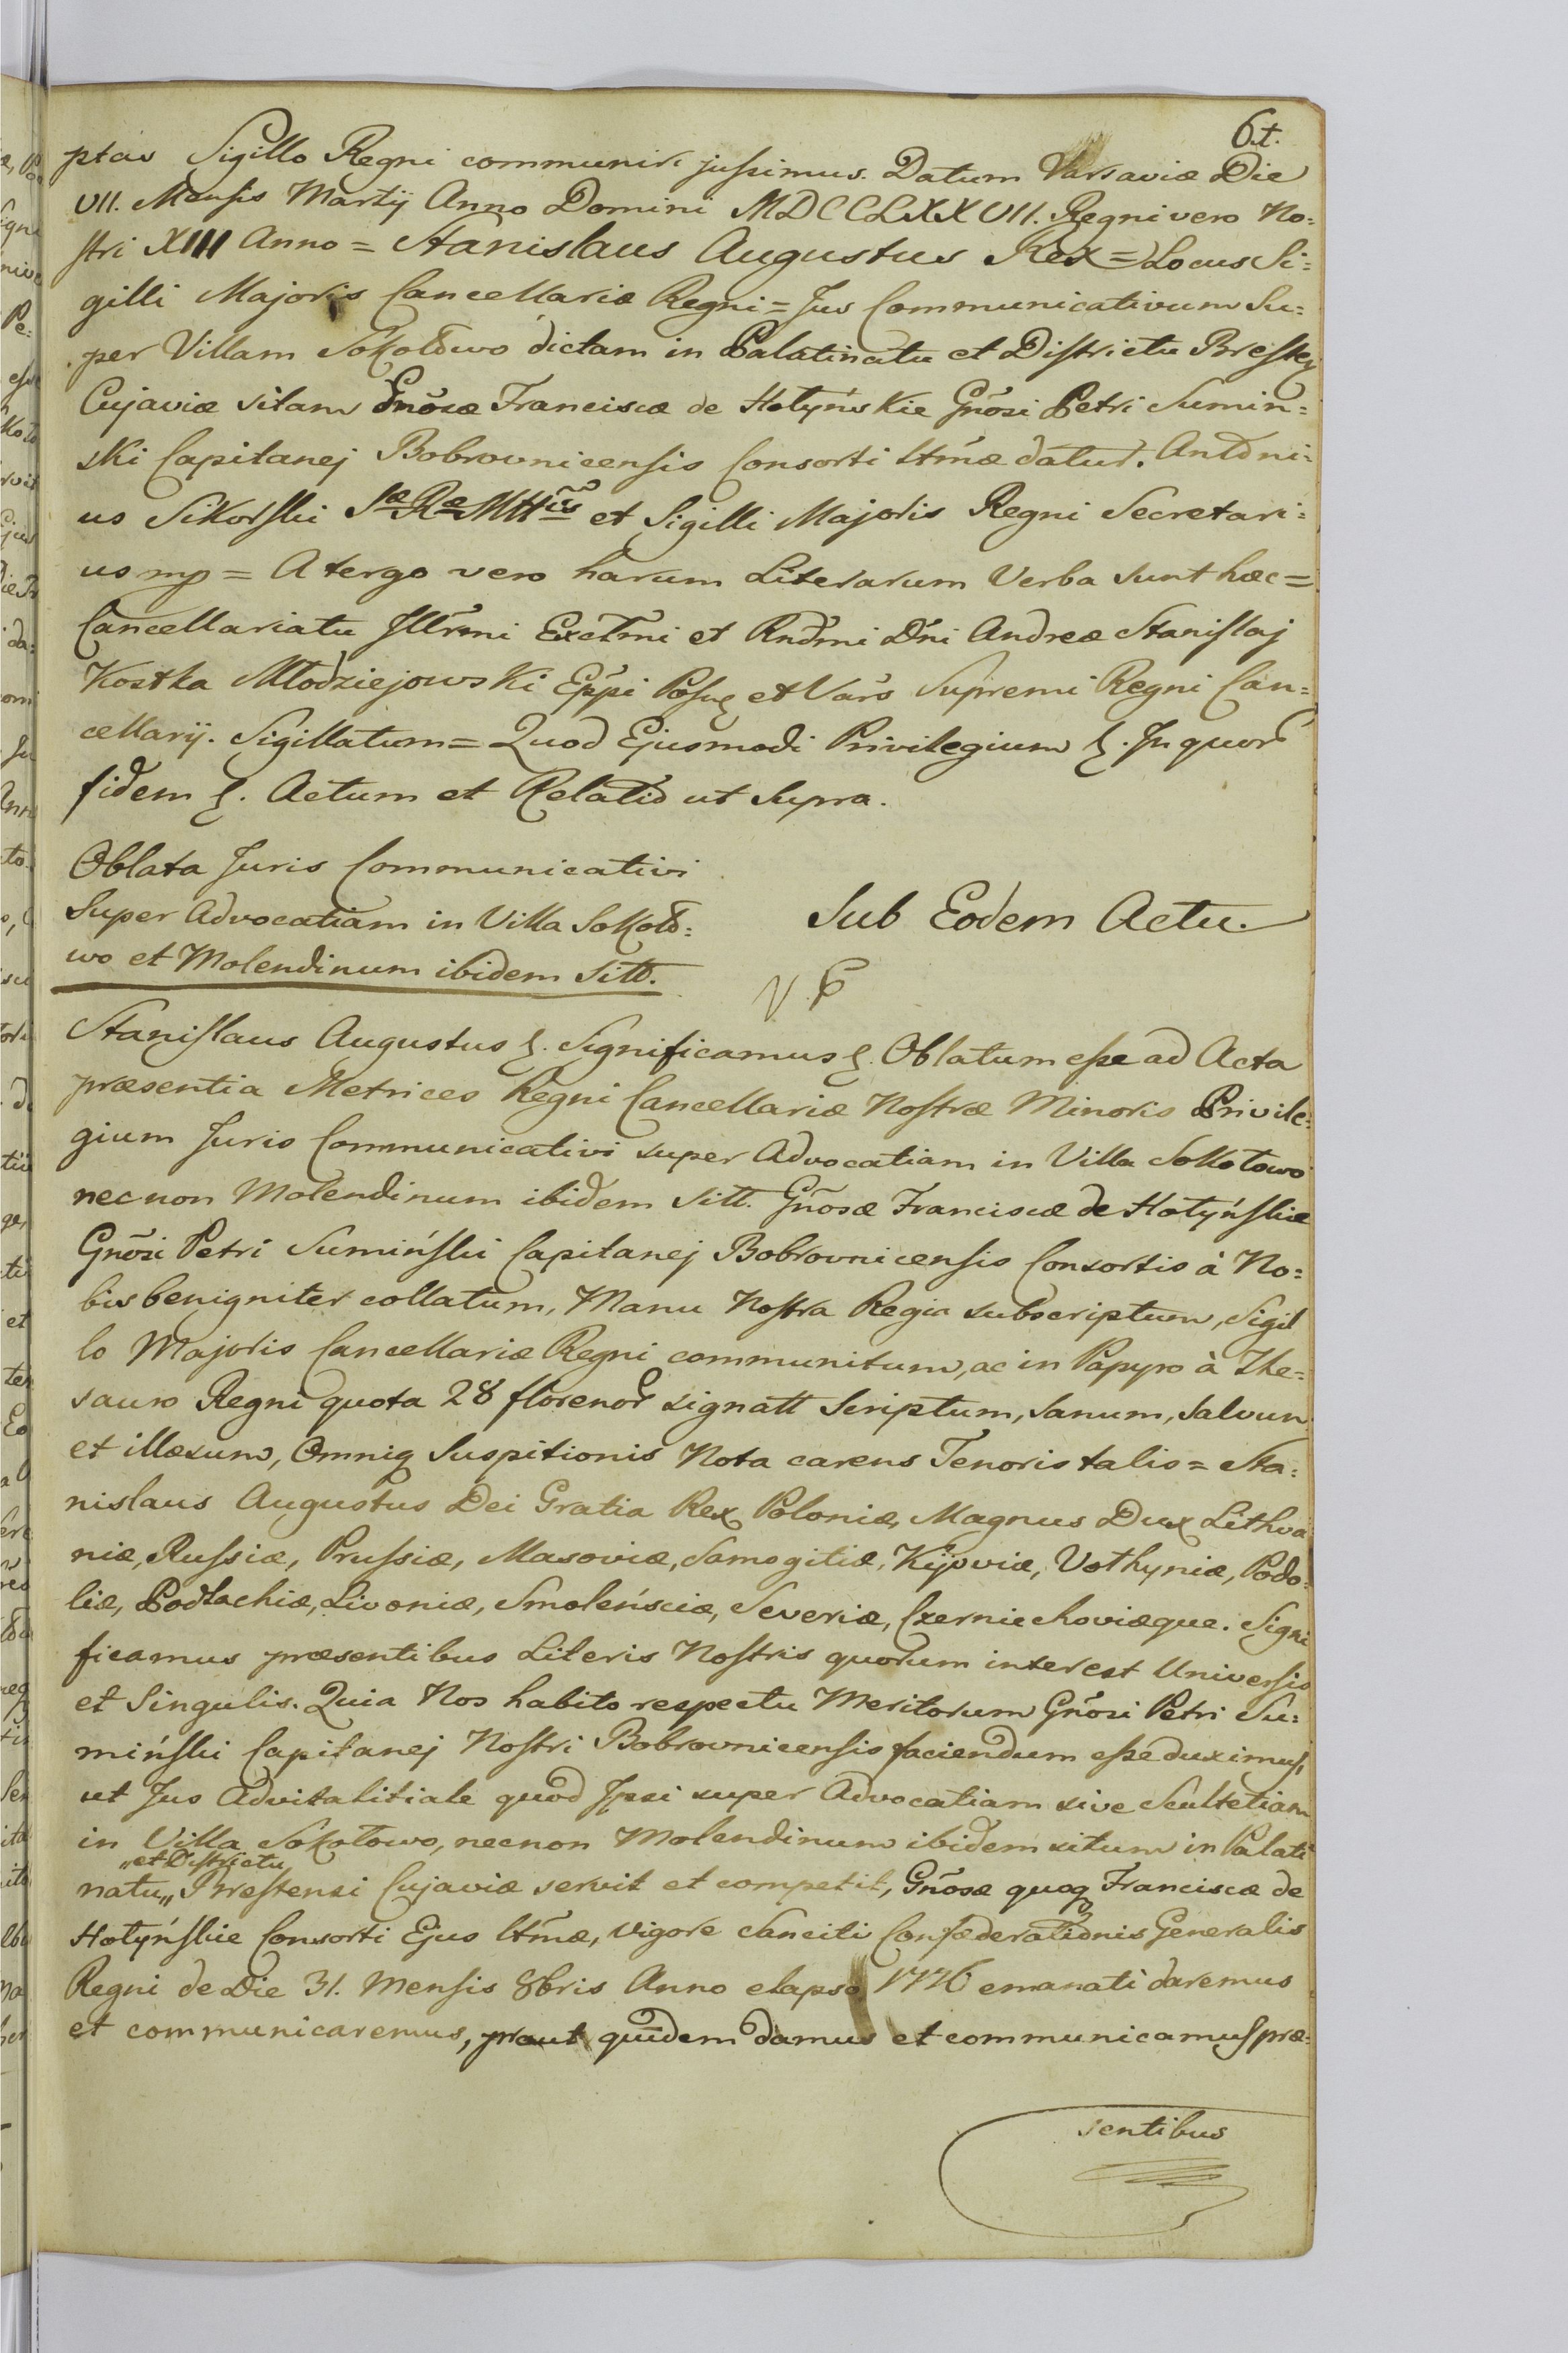 6.t.
ptas Sigillo Regni communiri jussimus. Datum Varsaviæ Die
VII. Mensis Martij Anno Domini MDCCLXXVII. Regni vero No=
stri XIII Anno = Stanislaus Augustus Rex = Locus Si=
gilli Majoris Cancellariæ Regni = Jus Communicativum Su=
per Villam Sokołowo dictam in Palatinatu et Districtu Bresten
Cujaviæ sitam Gnõsæ Franciscæ de Hotyńskie Gnõsi Petri Sumin=
ski Capitanej Bobrovnicensis Consorti ltmæ datur. Antoni=
us Sikorski Sæ Ræ Mttis et Sigilli Majoris Regni Secretari=
us mp = A tergo vero harum Literarum Verba sunt hæc =
Cancellariatu Jllrmi Exctmi et Rndmi Dni Andreæ Stanislaj
Kostka Młodziejowski Eppi Posn et Vars Supremi Regni Can=
cellarij. Sigillatum = Quod Ejusmodi Privilegium &. Jn quor
fidem &. Actum et Relatio ut Supra.
Oblata Juris Communicativi
Super Advocatiam in Villa Sokoło=
wo et Molendinum ibidem Sitt.
Sub Eodem Actu.
Stanislaus Augustus &. Significamus &. Oblatum esse ad Acta
præsentia Metrices Regni Cancellariæ Nostræ Minoris Privile=
gium Juris Communicativi super Advocatiam in Villa Sokołowo
necnon Molendinum ibidem Sitt. Gnõsæ Franciscæ de Hotyńskie
Gnõsi Petri Sumiński Capitanej Bobrovnicensis Consortis à No=
bis benigniter collatum, Manu Nostra Regia subscriptum, Sigil
lo Majoris Cancellariæ Regni communitum, ac in Papyro à The=
sauro Regni quota 28 florenor signatt Scriptum, Sanum, Salvum
et illæsum, Omniq Suspitionis Nota carens Tenoris talis = Sta=
nislaus Augustus Dei Gratia Rex Poloniæ, Magnus Dux Lithva
niæ, Russiæ, Prussiæ, Masoviæ, Samogitiæ, Kijoviæ, Volhyniæ, Podo=
liæ, Podlachiæ, Livoniæ, Smoleńsciæ, Severiæ, Czerniechoviæque. Signi
ficamus præsentibus Literis Nostris quorum interest Universis
et Singulis. Quia Nos habito respectu Meritorum Gnõsi Petri Su=
miński Capitanej Nostri Bobrovnicensis faciendum esse duximus,
ut Jus Advitalitiale quod Jpsi super Advocatiam sive Scultetiam
in Villa Sokołowo, necnon Molendinum ibidem situm in Palati
"et Districtu
natu" Brestensi Cujaviæ servit et competit, Gnõsæ quoq Franciscæ de
Hotyńskie Consorti Ejus ltmæ, vigore Sanciti Confæderationis Generalis
Regni de Die 31. Mensis 8bris Anno elapso 1776 emanati daremus
et communicaremus, prout quidem damus et communicamus præ=
sentibus